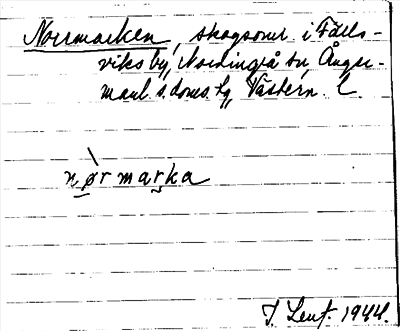 Norrmarken, skogsomr. i Fälls-
viks by, Nordingrå sn, Ånger-
manl. s. doms. tg, Västern. l.
nørmarka
J. Lent. 1944.